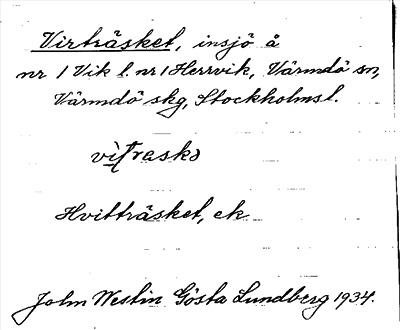 Virträsket, insjö å
nr 1 Vik l. nr 1 Herrvik, Värmdö sn,
Värmdö skg, Stockholmsl.
Hvitträsket, ek
John Westin Gösta Lundberg 1934.